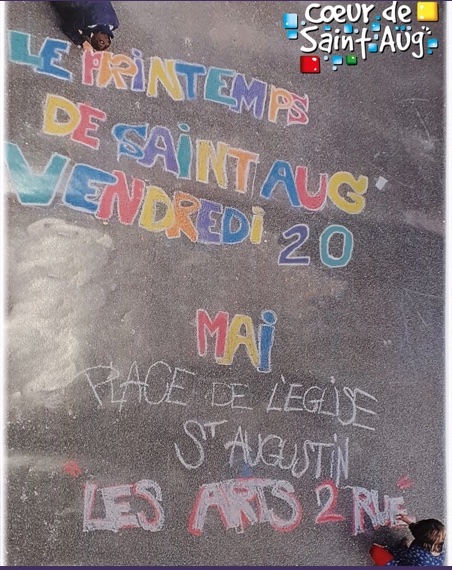 cœur de
Saint Aug'
LE PRINTEMPS
DE SAINT AUG'
VENDREDI 20
MAI
PLACE DE L'EGLISE
ST AUGUSTIN
"LES ARTS 2 RUE"